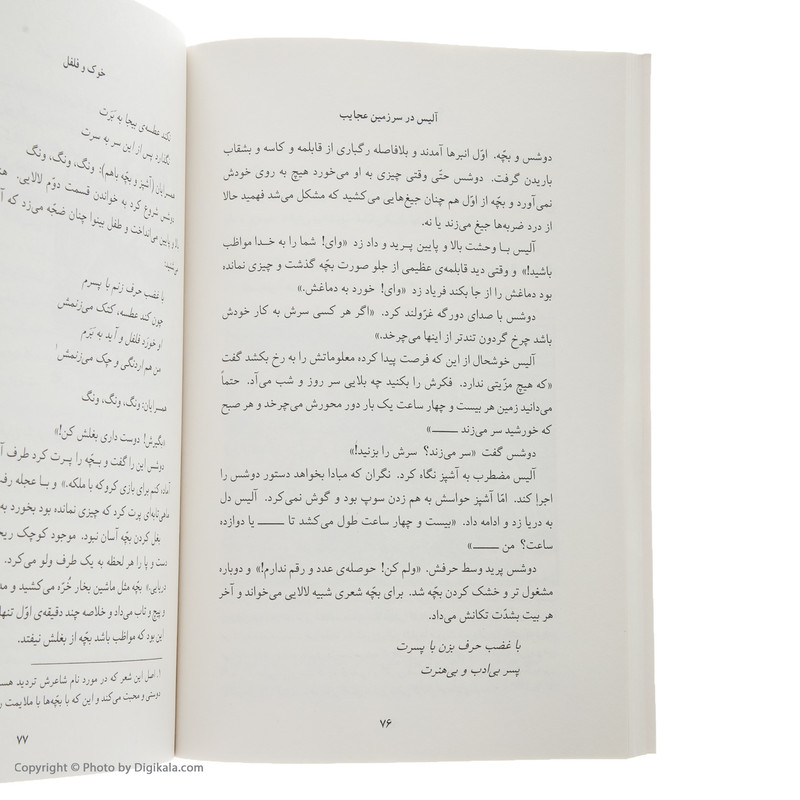 آلیس در سرزمین عجایب
دوشس و بچّه. اوّل انبرها آمدند و بلافاصله رگباری از قابلمه و کاسه و بشقاب
باریدن گرفت. دوشس حتّی وقتی چیزی به او می‌خورد هیچ به روی خودش
نمی‌آورد و بچه از اوّل هم چنان جیغ‌هایی می‌کشید که مشکل می‌شد فهمید حالا
از درد ضربه‌ها جیغ می‌زند یا نه.
آلیس بـا وحشت بالا و پایین پـرید و داد زد «وای! شما را به خـدا مواظب
باشید!» و وقتی دید قابلمه‌ی عظیمی از جلو صورت بچّه گذشت و چیزی نمانده
بود دماغش را از جا بکند فریاد زد «وای! خورد به دماغش.»
دوشس با صدای دورگه غرّولند کرد. «اگر هر کسی سرش به کار خودش
باشد چرخ گردون تندتر از اینها می‌چرخد.»
آلیس خوشحال از این که فرصت پیدا کرده معلوماتش را به رخ بکشد گفت
«که هیچ مزیّتی ندارد. فکرش را بکنید چه بلایی سر روز و شب می‌آد. حتماً
می‌دانید زمین هر بیست و چهار ساعت یک بار دور محورش می‌چرخد و هر صبح
که خورشید سر می‌زند ـــــ»
دوشس گفت «سر می‌زند؟ سرش را بزنید!»
آلیس مضطرب به آشپز نگاه کرد. نگران که مبادا بخواهد دستور دوشس را
اجرا کند. امّا آشپز حواسش به هم زدن سوپ بود و گوش نمی‌کرد. آلیس دل
به دریا زد و ادامه داد. «بیست و چهار ساعت طول می‌کشد تا ـــــ یا دوازده
ساعت؟ من ـــــ»
دوشس پرید وسط حرفش. «ولم کن! حوصله‌ی عدد و رقم ندارم!» و دوباره
مشغول تر و خشک کردن بچّه شد. برای بچّه شعری شبیه لالایی می‌خواند و آخر
هر بیت بشدّت تکانش می‌داد.
با غضب حرف بزن با پسرت
پسر بی‌ادب و بی‌هنرت
۷۶
خوک و فلفل
نکند عطسه‌ی بیجا به بَرَت
نگذارد پس از این سر به سرت
همسرایان (آشپز و بچّه باهم): ونگ، ونگ، ونگ
دوشس شروع کرد به خواندن قسمت دوّم لالایی.
و پایین می‌انداخت و طفل بینوا چنان ضجّه می‌زد که
با غضب حرف زنم با پسرم
چون کند عطسه، کتک می‌زنمش
او خورَد فلفل و آید به بَرَم
من هم اُردنگی و چک می‌زنمش!
همسرایان: ونگ، ونگ، ونگ
«بگیرش! دوست داری بغلش کن!»
دوشس این را گفت و بـچّه را پـرت کرد طرف
آماده کنم برای بازی کروکه با ملکه.» و بـا عجله
ماهی‌تابه‌ای پرت کرد که چیزی نمانده بود بخورد به
بغل کردن بچّه آسان نبود. موجود کوچک
دست و پا را هر لحظه به یک طرف ولو می‌کرد.
دریایی.» بچّه مثل ماشین بخار خُرّه می‌کشید و
و پیچ و تاب می‌داد و خلاصه چند دقیقه‌ی اوّل
این بود که مواظب باشد بچّه از بغلش نیفتد.
۱. اصل این شعر که در مورد نام شاعرش تردید
دوستی و محبت می‌کند و این که با بچّه‌ها با ملایمت
۷۷
Copyright © Photo by Digikala.com